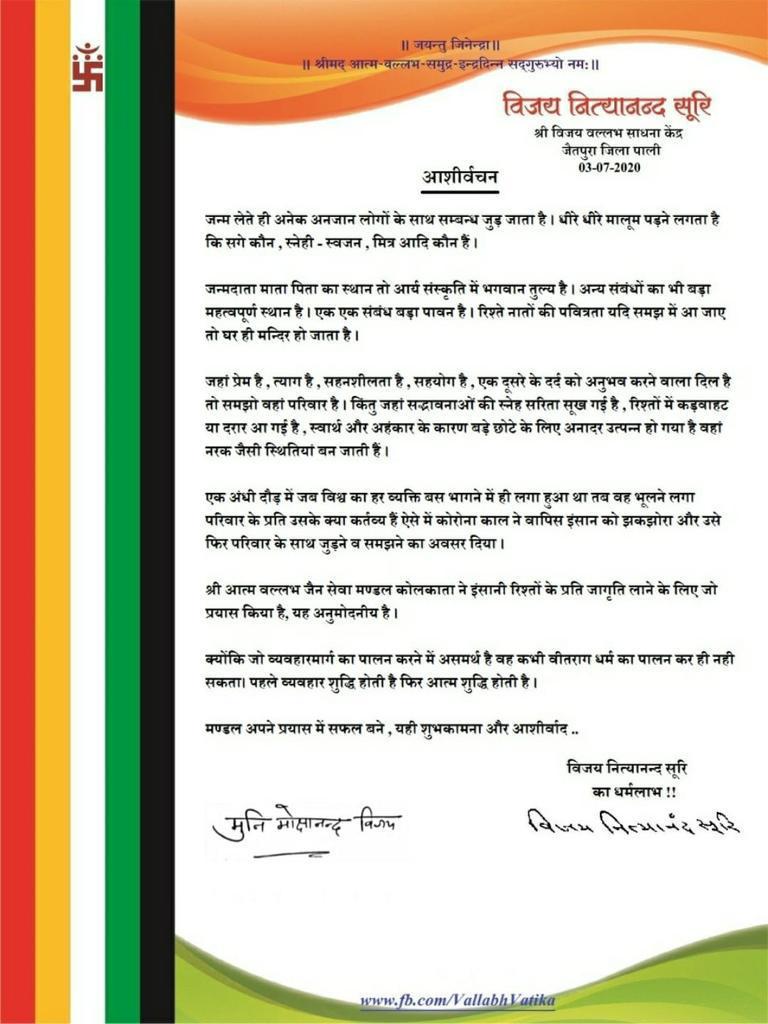 ॥ जयन्तु जिनेन्द्रा॥
॥ श्रीमद् आत्म-वल्लभ-समुद्र-इन्द्रदिन्न सद्गुरुभ्यो नमः॥
विजय नित्यानन्द सूरि
श्री विजय वल्लभ साधना केंद्र
जैतपुरा जिला पाली
03-07-2020
आशीर्वचन
जन्म लेते ही अनेक अनजान लोगों के साथ सम्बन्ध जुड़ जाता है। धीरे धीरे मालूम पड़ने लगता है
कि सगे कौन , स्नेही - स्वजन , मित्र आदि कौन हैं।
जन्मदाता माता पिता का स्थान तो आर्य संस्कृति में भगवान तुल्य है। अन्य संबंधों का भी बड़ा
महत्वपूर्ण स्थान है। एक एक संबंध बड़ा पावन है। रिश्ते नातों की पवित्रता यदि समझ में आ जाए
तो घर ही मन्दिर हो जाता है।
जहां प्रेम है , त्याग है , सहनशीलता है , सहयोग है , एक दूसरे के दर्द को अनुभव करने वाला दिल है
तो समझो वहां परिवार है। किंतु जहां सद्भावनाओं की स्नेह सरिता सूख गई है , रिश्तों में कड़वाहट
या दरार आ गई है , स्वार्थ और अहंकार के कारण बड़े छोटे के लिए अनादर उत्पन्न हो गया है वहां
नरक जैसी स्थितियां बन जाती हैं।
एक अंधी दौड़ में जब विश्व का हर व्यक्ति बस भागने में ही लगा हुआ था तब वह भूलने लगा
परिवार के प्रति उसके क्या कर्तव्य हैं ऐसे में कोरोना काल ने वापिस इंसान को झकझोरा और उसे
फिर परिवार के साथ जुड़ने व समझने का अवसर दिया।
श्री आत्म वल्लभ जैन सेवा मण्डल कोलकाता ने इंसानी रिश्तों के प्रति जागृति लाने के लिए जो
प्रयास किया है, यह अनुमोदनीय है।
क्योंकि जो व्यवहारमार्ग का पालन करने में असमर्थ है वह कभी वीतराग धर्म का पालन कर ही नही
सकता। पहले व्यवहार शुद्धि होती है फिर आत्म शुद्धि होती है।
मण्डल अपने प्रयास में सफल बने , यही शुभकामना और आशीर्वाद ..
विजय नित्यानन्द सूरि
का धर्मलाभ !!
मुनि मोक्षानन्द विजय
विजय नित्यानंद सूरि
www.fb.com/VallabhVatika